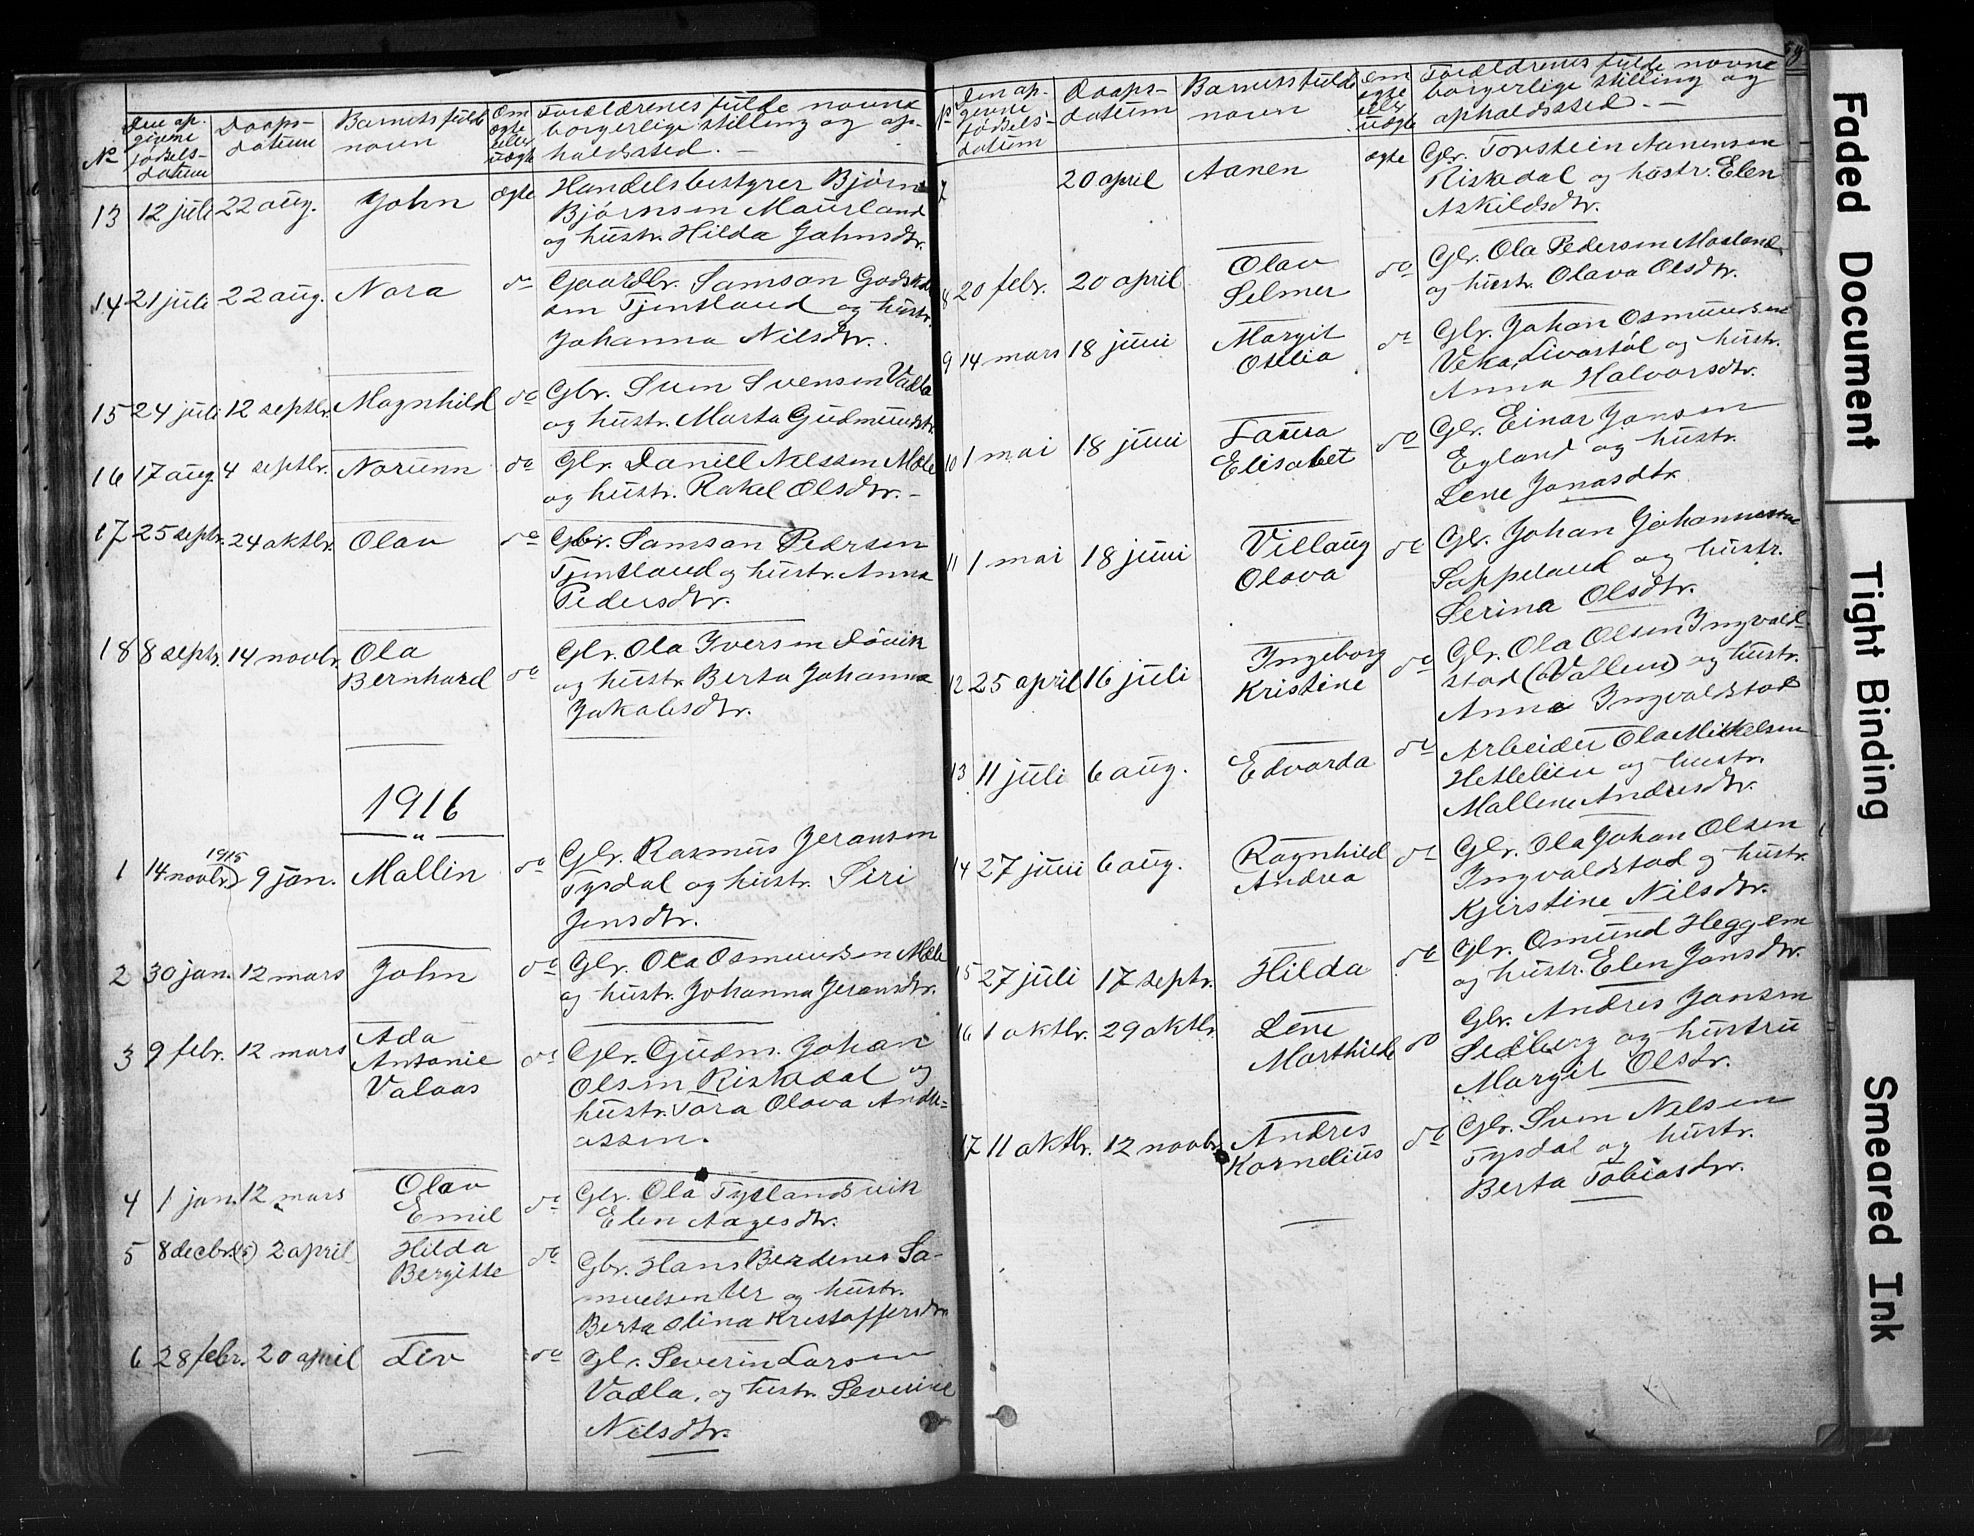 No
Den op-
givne
fødsels-
datum
Daaps-
datum
Barnets fulde
navn
Om
egte
eller
uægte
Forældrenes fulde navne
borgerlige stilling og op-
holdssted. -
13 12 juli 22 aug. John ægte Handelsbestyrer Bjørn
Bjørnsen Maurland
og hustr. Hilda Johnsdtr.
14 21 juli 22 aug. Nora do Gaardbr. Samson Godsk
sen Tjentland og hustr.
Johanna Nilsdtr.
15 24 juli 12 septbr. Magnhild do Gbr. Sven Svensen Vadla
og hustr. Marta Gudmundsdtr
16 17 aug. 4 septbr. Norunn do Gbr. Daniel Nilssen Mæle
og hustr. Rakel Olsdtr. -
17 25 septbr. 24 oktbr. Olav do Gbr. Samson Pedersen
Tjentland og hustr. Anna
Pedersdtr.
18 8 septr. 14 novbr. Ola
Bernhard do Gbr. Ola Iversen Døvik
og hustr. Berta Johanna
Jakobsdtr.
1916
"
1 14 novbr. 1915) 9 jan. Mallin do Gbr. Rasmus Jeransen
Tysdal og hustr. Siri
Jensdtr.
2 30 jan. 12 mars John do Gbr. Ola Osmundsen Mæle
og hustr. Johanna Jeransdtr.
3 9 febr. 12 mars Ada
Antonie
Valaas do Gbr. Gudm. Johan
Olsen Riskadal og
hustr. Tora Olava Andre=
assen.
4 1 jan. 12 mars Olav
Emil do Gbr. Ola Tytlandsvik
Elen Aagesdtr.
5 8 decbr. (15) 2 april Hilda
Bergitte do Gbr. Hans Berdenes Sa-
muelsen Ur og hustr.
Berta Olina Kristoffersdtr
6 28 febr. 20 april Liv do Gbr. Severin Larsen
Vadla, og hustr. Severine
Nilsdtr.
No
Den op-
givne
fødsels-
datum
Daaps-
datum
Barnets fulde
navn
Om
egte
eller
uægte
Forældrenes fulde navne
borgerlige stilling og
opholdssted. -
7 20 april Aanen ægte Gbr. Torstein Aanensen
Riskadal og hustr. Elen
Askildsdtr.
8 20 febr. 20 april Olav
Selmer do Gbr. Ola Pedersen Mosland
og hustr. Olava Olsdtr.
9 14 mars 18 juni Margit
Otelia do Gbr. Johan Osmundsen
Veka, Livastøl og hustr.
Anna Halvorsdtr.
10 1 mai 18 juni Laura
Elisabet do Gbr. Einar Jonsen
Eyland og hustr.
Lene Jonasdtr.
11 1 mai 18 juni Villaug
Olava do Gbr. Johan Johannessen
Soppeland og hustr.
Serina Olsdtr.
12 25 april 16 juli Ingeborg
Kristine do Gbr. Ola Olsen Ingvald-
stad (Vallen) og hustr.
Anna Ingvaldstad
13 11 juli 6 aug. Edvarda do Arbeider Ola Mikkelsen
Hetlelien og hustr.
Mallene Andresdtr.
14 27 juni 6 aug. Ragnhild
Andrea do Gbr. Ola Johan Olsen
Ingvaldstad og hustr.
Kjerstine Nilsdtr.
15 27 juli 17 septr. Hilda do Gbr. Omund Heggem
og hustr. Elen Jonsdtr.
16 1 oktbr. 29 oktbr. Lene
Marthilde do Gbr. Andres Jansen
Sedberg og hustru
Margit Olsdtr.
17 11 oktbr. 12 novbr. Andres
Kornelius do Gbr. Sven Nilsen
Tysdal og hustr.
Berta Tobiasdtr.
Faded Document
Tight Binding
Smeared Ink